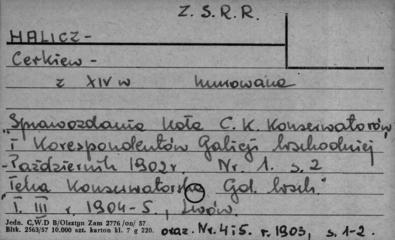 Z. S. R. R.
HALICZ-
Cerkiew -
z XIV w murowana
"Sprawozdania Koła C. K. Konserwatorów
i Korespondentów Galicji wschodniej"
- Październik 1902 r. Nr. 1. s. 2
"Teka Konserwatorska Gal. wsch."
T. III r. 1904-5., Lwów.
Jedn. C.W.D B/Olsztyn Zam 2776 /on/ 57
Blsk. 2563/57 10.000 szt. karton kl. 7 g 220.
oraz. Nr. 4 i 5. r. 1903, s. 1-2.